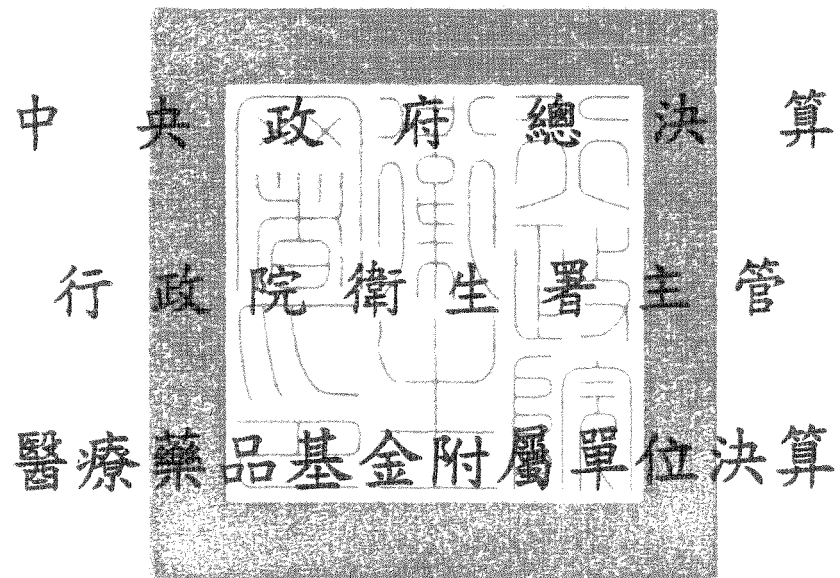 中央政府總決算
行政院衛生署主管
醫療藥品基金附屬單位決算